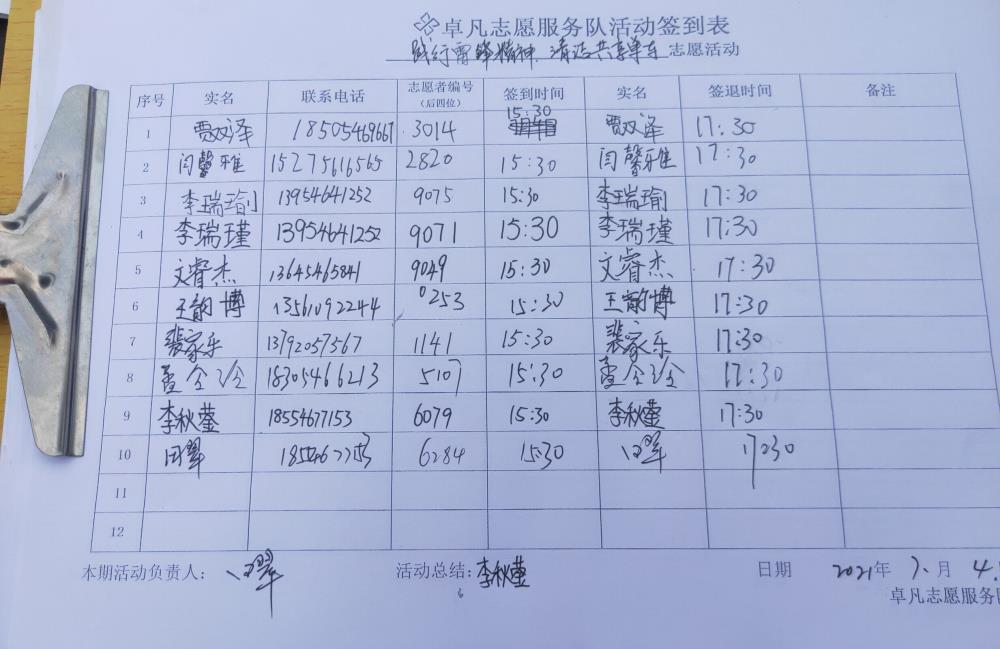 卓凡志愿服务队活动签到表
践行雷锋精神、清洁共享单车 志愿活动
序号 实名 联系电话 志愿者编号（后四位） 签到时间 实名 签退时间 备注
1 贾双泽 18505469667 3014 15:30 贾双泽 17:30
2 闫馨雅 15275616565 2820 15:30 闫馨雅 17:30
3 李瑞瑜 13954641252 9075 15:30 李瑞瑜 17:30
4 李瑞瑾 13954641252 9071 15:30 李瑞瑾 17:30
5 文睿杰 13645465841 9049 15:30 文睿杰 17:30
6 王韵博 13561092244 0253 15:30 王韵博 17:30
7 裴家乐 13792057567 1141 15:30 裴家乐 17:30
8 18305466213 5107 15:30 17:30
9 李秋莹 18554677153 6079 15:30 李秋莹 17:30
10 田翠 18554677153 6284 15:30 田翠 17:30
11
12
本期活动负责人: 田翠 活动总结: 李秋莹 日期 2021年 7、月 4.
卓凡志愿服务